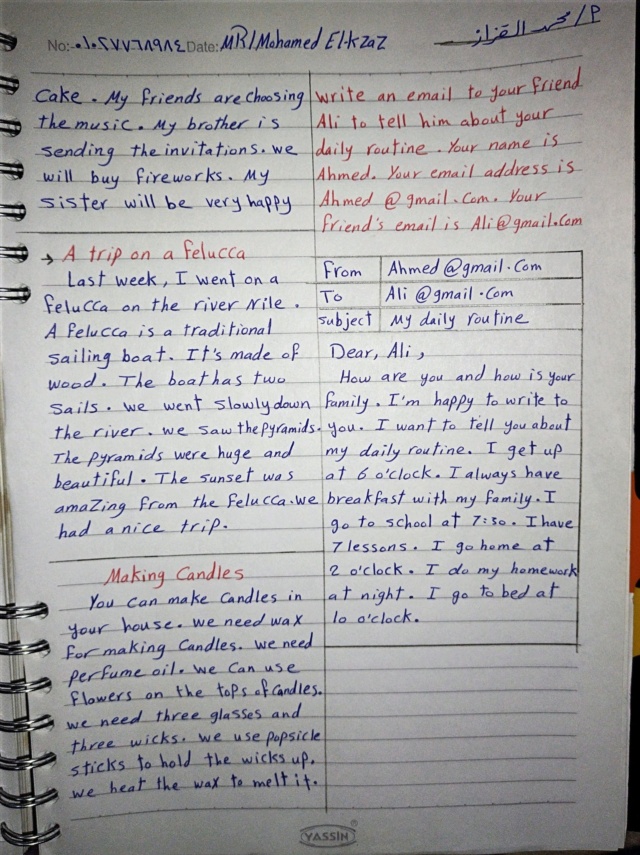 No: ٠١٠٢٧٧٦٨٩٨٤ Date: MR/Mohamed El-kzaz
م/ محمد القزاز
Cake. My friends are choosing
the music. My brother is
sending the invitations. we
will buy fireworks. My
sister will be very happy
→ A trip on a felucca
Last week, I went on a
felucca on the river Nile.
A felucca is a traditional
sailing boat. It's made of
wood. The boat has two
sails. we went slowly down
the river. we saw the pyramids.
The pyramids were huge and
beautiful. The sunset was
amazing from the felucca. we
had a nice trip.
Making Candles
You can make candles in
your house. we need wax
for making candles. we need
perfume oil. we can use
flowers on the tops of candles.
we need three glasses and
three wicks. we use popsicle
sticks to hold the wicks up.
we heat the wax to melt it.
write an email to your friend
Ali to tell him about your
daily routine. Your name is
Ahmed. Your email address is
Ahmed @gmail.Com. Your
friend's email is Ali@gmail.Com
From Ahmed@gmail.Com
To Ali @gmail.Com
subject My daily routine
Dear, Ali,
How are you and how is your
family. I'm happy to write to
you. I want to tell you about
my daily routine. I get up
at 6 o'clock. I always have
breakfast with my family. I
go to school at 7:30. I have
7 lessons. I go home at
2 o'clock. I do my homework
at night. I go to bed at
10 o'clock.
YASSIN